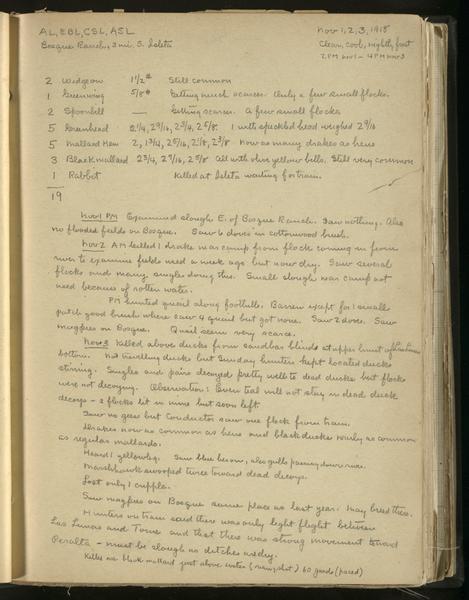 AL, EBL, CSL, ASL
Nov 1, 2, 3, 1918
Bosque Ranch, 3 mi. S. Isleta
Clear, cool, nightly frost
2 PM Nov 1 - 4 PM Nov 3
2 Widgeon 1 1/2 # Still common
1 Greenwing 5/8 # Getting much scarcer. Only a few small flocks.
2 Spoonbill — Getting scarce. A few small flocks
5 Greenhead 2 1/4, 2 9/16, 2 3/4, 2 5/8. 1 with speckled head weighed 2 9/16
5 Mallard Hen 2, 1 3/4, 2 5/16, 2 1/8, 2 3/8 Now as many drakes as hens
3 Black mallard 2 3/4, 2 7/16, 2 5/8 All with olive yellow bills. Still very common
1 Rabbit Killed at Isleta waiting for train.
19
Nov 1 PM Examined slough E. of Bosque Ranch. Saw nothing. Also
no flooded fields on Bosque. Saw 6 doves in cottonwood brush.
Nov 2 AM killed 1 drake near camp from flock coming in from
river to examine fields used a week ago but now dry. Saw several
flocks and many singles doing this. Small slough near camp not
used because of rotten water.
PM hunted quail along foothills. Barren except for 1 small
patch good brush where saw 4 quail but got none. Saw 2 doves. Saw
magpies on Bosque. Quail seem very scarce.
Nov 3 Killed above ducks from sandbar blinds at upper limit of Los Lunas
bottom. No travelling ducks but Sunday hunters kept located ducks
stirring. Singles and pairs decoyed pretty well to dead ducks but flocks
were not decoying. Observation: Even teal will not stay in dead duck
decoys - 2 flocks lit in mine but soon left
Saw no geese but conductor saw one flock from train.
Drakes now as common as hens and black ducks nearly as common
as regular mallards.
Heard 1 yellowleg. Saw blue heron, also gulls passing down river.
Marsh hawk swooped twice toward dead decoys.
Lost only 1 cripple.
Saw magpies on Bosque same place as last year. May breed there.
Hunters on train said there was only light flight between
Los Lunas and Tome and that there was strong movement toward
Peralta - must be slough as ditches are dry.
Killed one black mallard just above water (swing shot) 60 yards (paced)